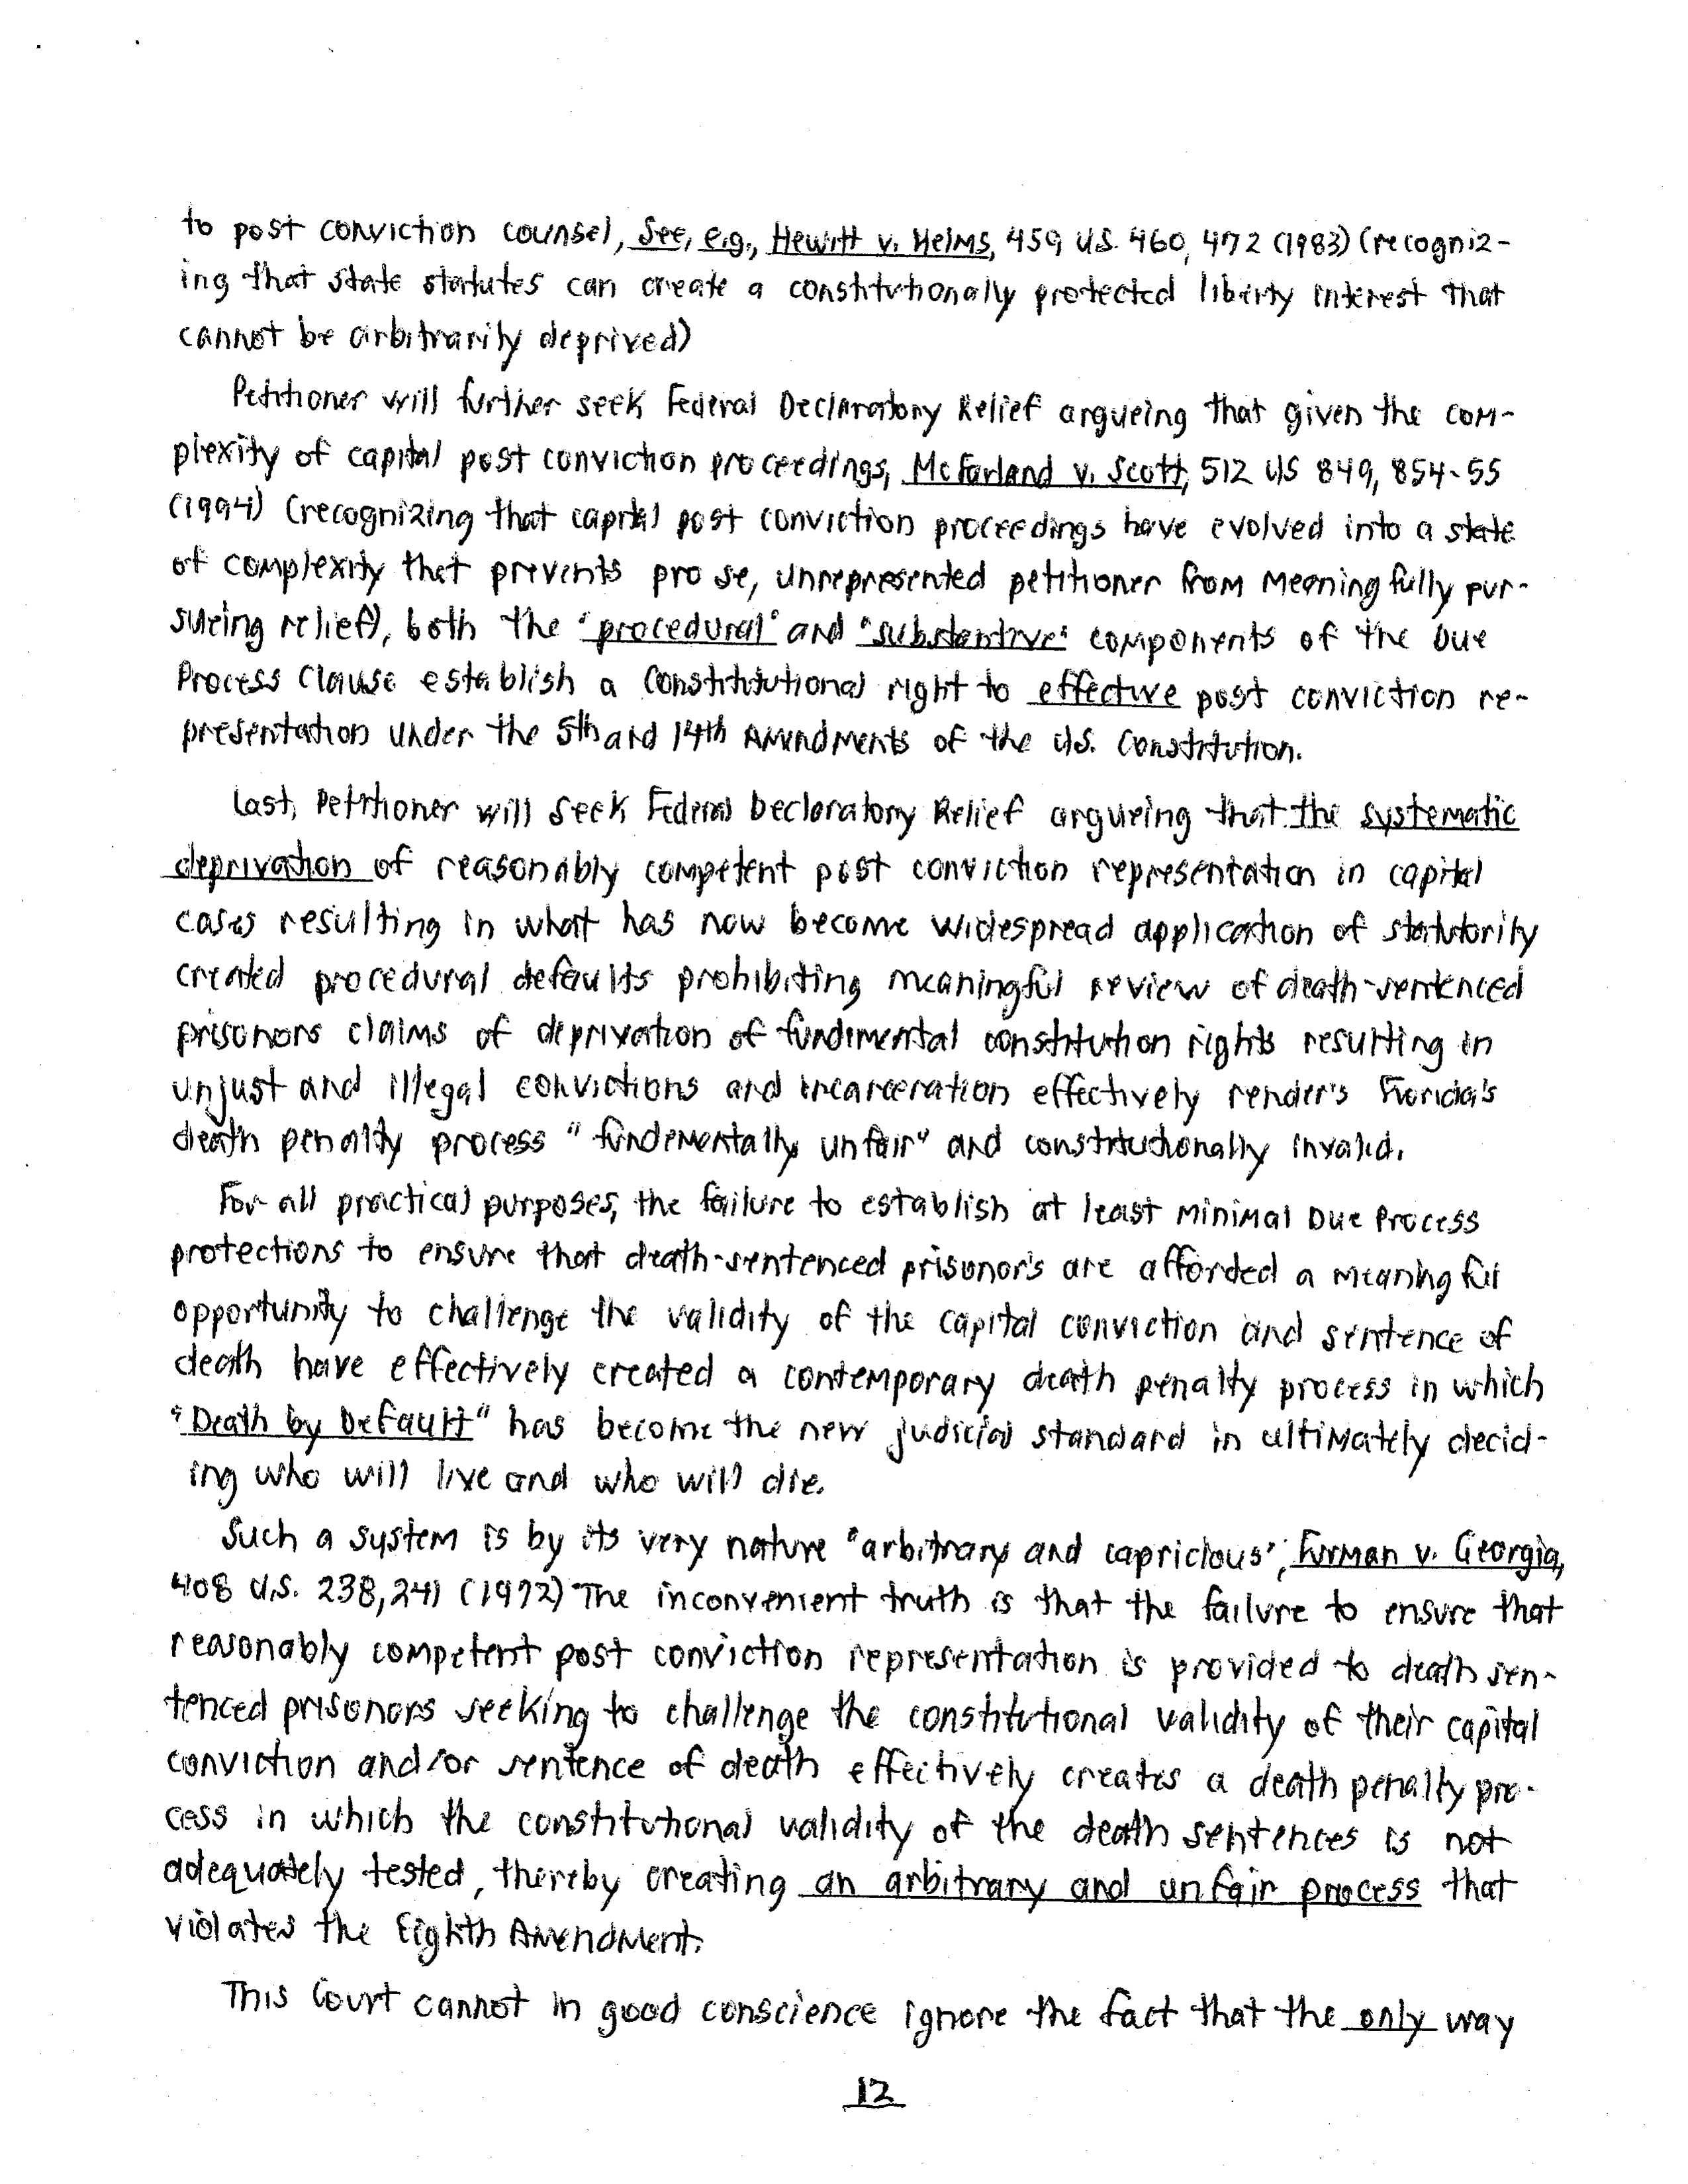 to post conviction counsel, See, e.g., Hewitt v. Helms, 459 U.S. 460, 472 (1983) (recogniz-
ing that state statutes can create a constitutionally protected liberty interest that
cannot be arbitrarily deprived)
Petitioner will further seek Federal Declaratory Relief argueing that given the com-
plexity of capital post conviction proceedings, McFarland v. Scott, 512 US 849, 854-55
(1994) (recognizing that capital post conviction proceedings have evolved into a state
of complexity that prevents pro se, unrepresented petitioner from meaningfully pur-
sueing relief), both the "procedural" and "substantive" components of the Due
Process Clause establish a Constitutional right to effective post conviction re-
presentation under the 5th and 14th Amendments of the U.S. Constitution.
Last, Petitioner will seek Federal Declaratory Relief argueing that the systematic
deprivation of reasonably competent post conviction representation in capital
cases resulting in what has now become widespread application of statutority
created procedural defaults prohibiting meaningful review of death-sentenced
prisonors claims of deprivation of fundimental constitution rights resulting in
unjust and illegal convictions and incarceration effectively render's Florida's
death penalty process "fundementally unfair" and constitutionally invalid.
For all practical purposes, the failure to establish at least minimal Due Process
protections to ensure that death-sentenced prisonor's are afforded a meaningful
opportunity to challenge the validity of the capital conviction and sentence of
death have effectively created a contemporary death penalty process in which
"Death by Default" has become the new judicial standard in ultimately decid-
ing who will live and who will die.
Such a system is by its very nature "arbitrary and capricious", Furman v. Georgia,
408 U.S. 238, 241 (1972) The inconvenient truth is that the failure to ensure that
reasonably competent post conviction representation is provided to death sen-
tenced prisonors seeking to challenge the constitutional validity of their capital
conviction and/or sentence of death effectively creates a death penalty pro-
cess in which the constitutional validity of the death sentences is not
adequately tested, thereby creating an arbitrary and unfair process that
violates the Eighth Amendment.
This Court cannot in good conscience ignore the fact that the only way
12